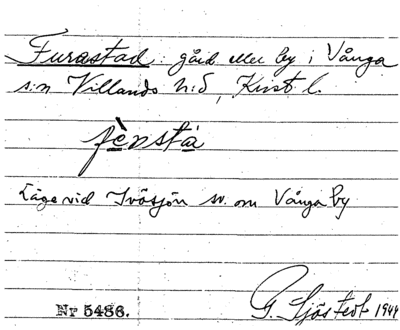 Furastad: gård eller by i Vånga
s:n Villands h:d, Krist. l.
fènstá
Läge vid Ivösjön sv. om Vånga by
Nr 5486. G. Sjöstedt 1944